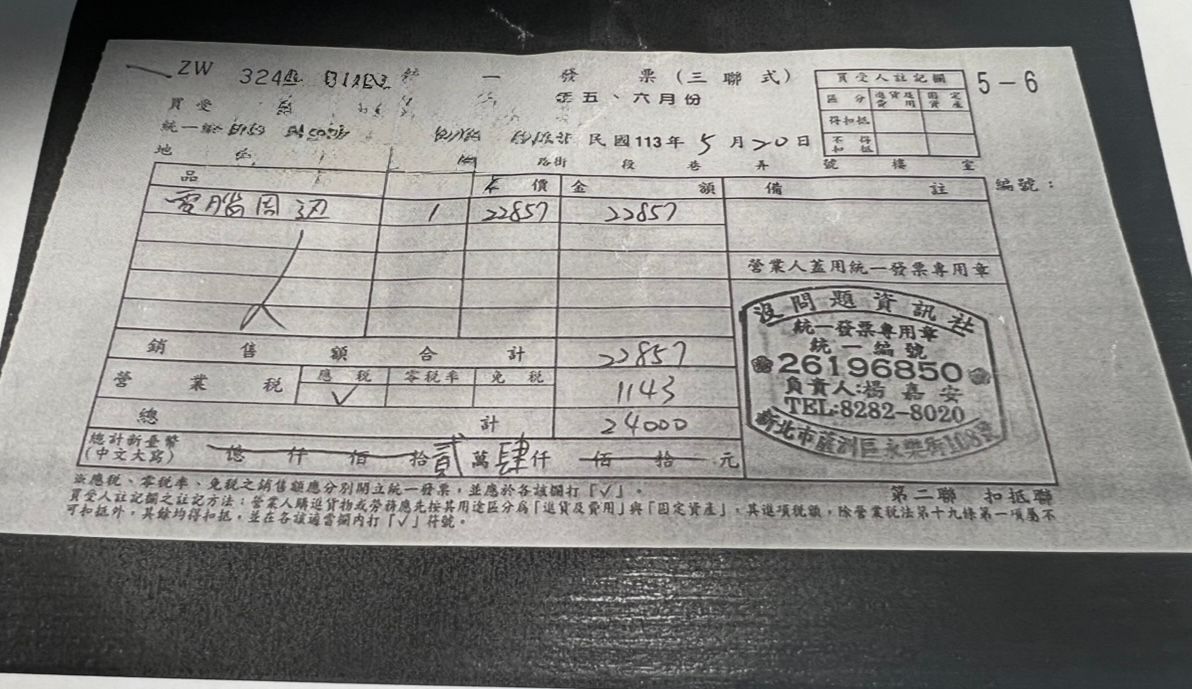 ZW 324 統一發票(三聯式) 5-6
年五、六月份
買受
統一編 民國113年5月20日
地 路街 段 巷 弄 號 樓 室
買受人註記欄
區分 進貨及費用 固定資產
得扣抵
不得扣抵
品 價 金額 備註 編號:
電腦周边 1 22857 22857
營業人蓋用統一發票專用章
銷售額合計 22857
營業稅 應稅 √ 零稅率 免稅 1143
總計 24000
總計新臺幣
(中文大寫) 億仟佰拾貳萬肆仟佰拾元
沒問題資訊社
統一發票專用章
統一編號
26196850
負責人:楊嘉安
TEL:8282-8020
新北市蘆洲區永樂街
※應稅、零稅率、免稅之銷售額應分別開立統一發票,並應於各該欄打「√」。
第二聯 扣抵聯
買受人註記欄之註記方法:營業人購進貨物或勞務應先按其用途區分為「進貨及費用」與「固定資產」,其進項稅額,除營業稅法第十九條第一項屬不
可扣抵外,其餘均得扣抵,並在各該適當欄內打「√」符號。